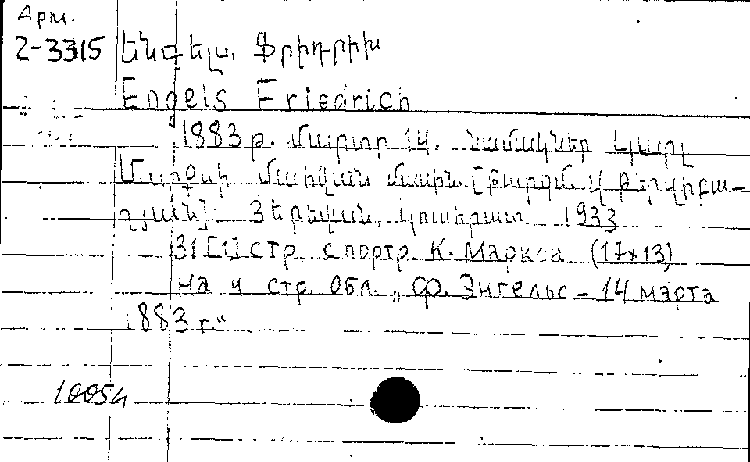 Арм.
2-3315 Ենգելս, Ֆրիդրիխ
Engels Friedrich
1883 թ. մարտի 14. Նամակներ Կարլ
Մարքսի մահվան մասին. [Թարգմ.
Յերեվան, Կուսհրատ 1933
31 [1] стр. с портр. К. Маркса (17x13)
на 4 стр. обл. „Ф. Энгельс – 14 марта
1883 г.“